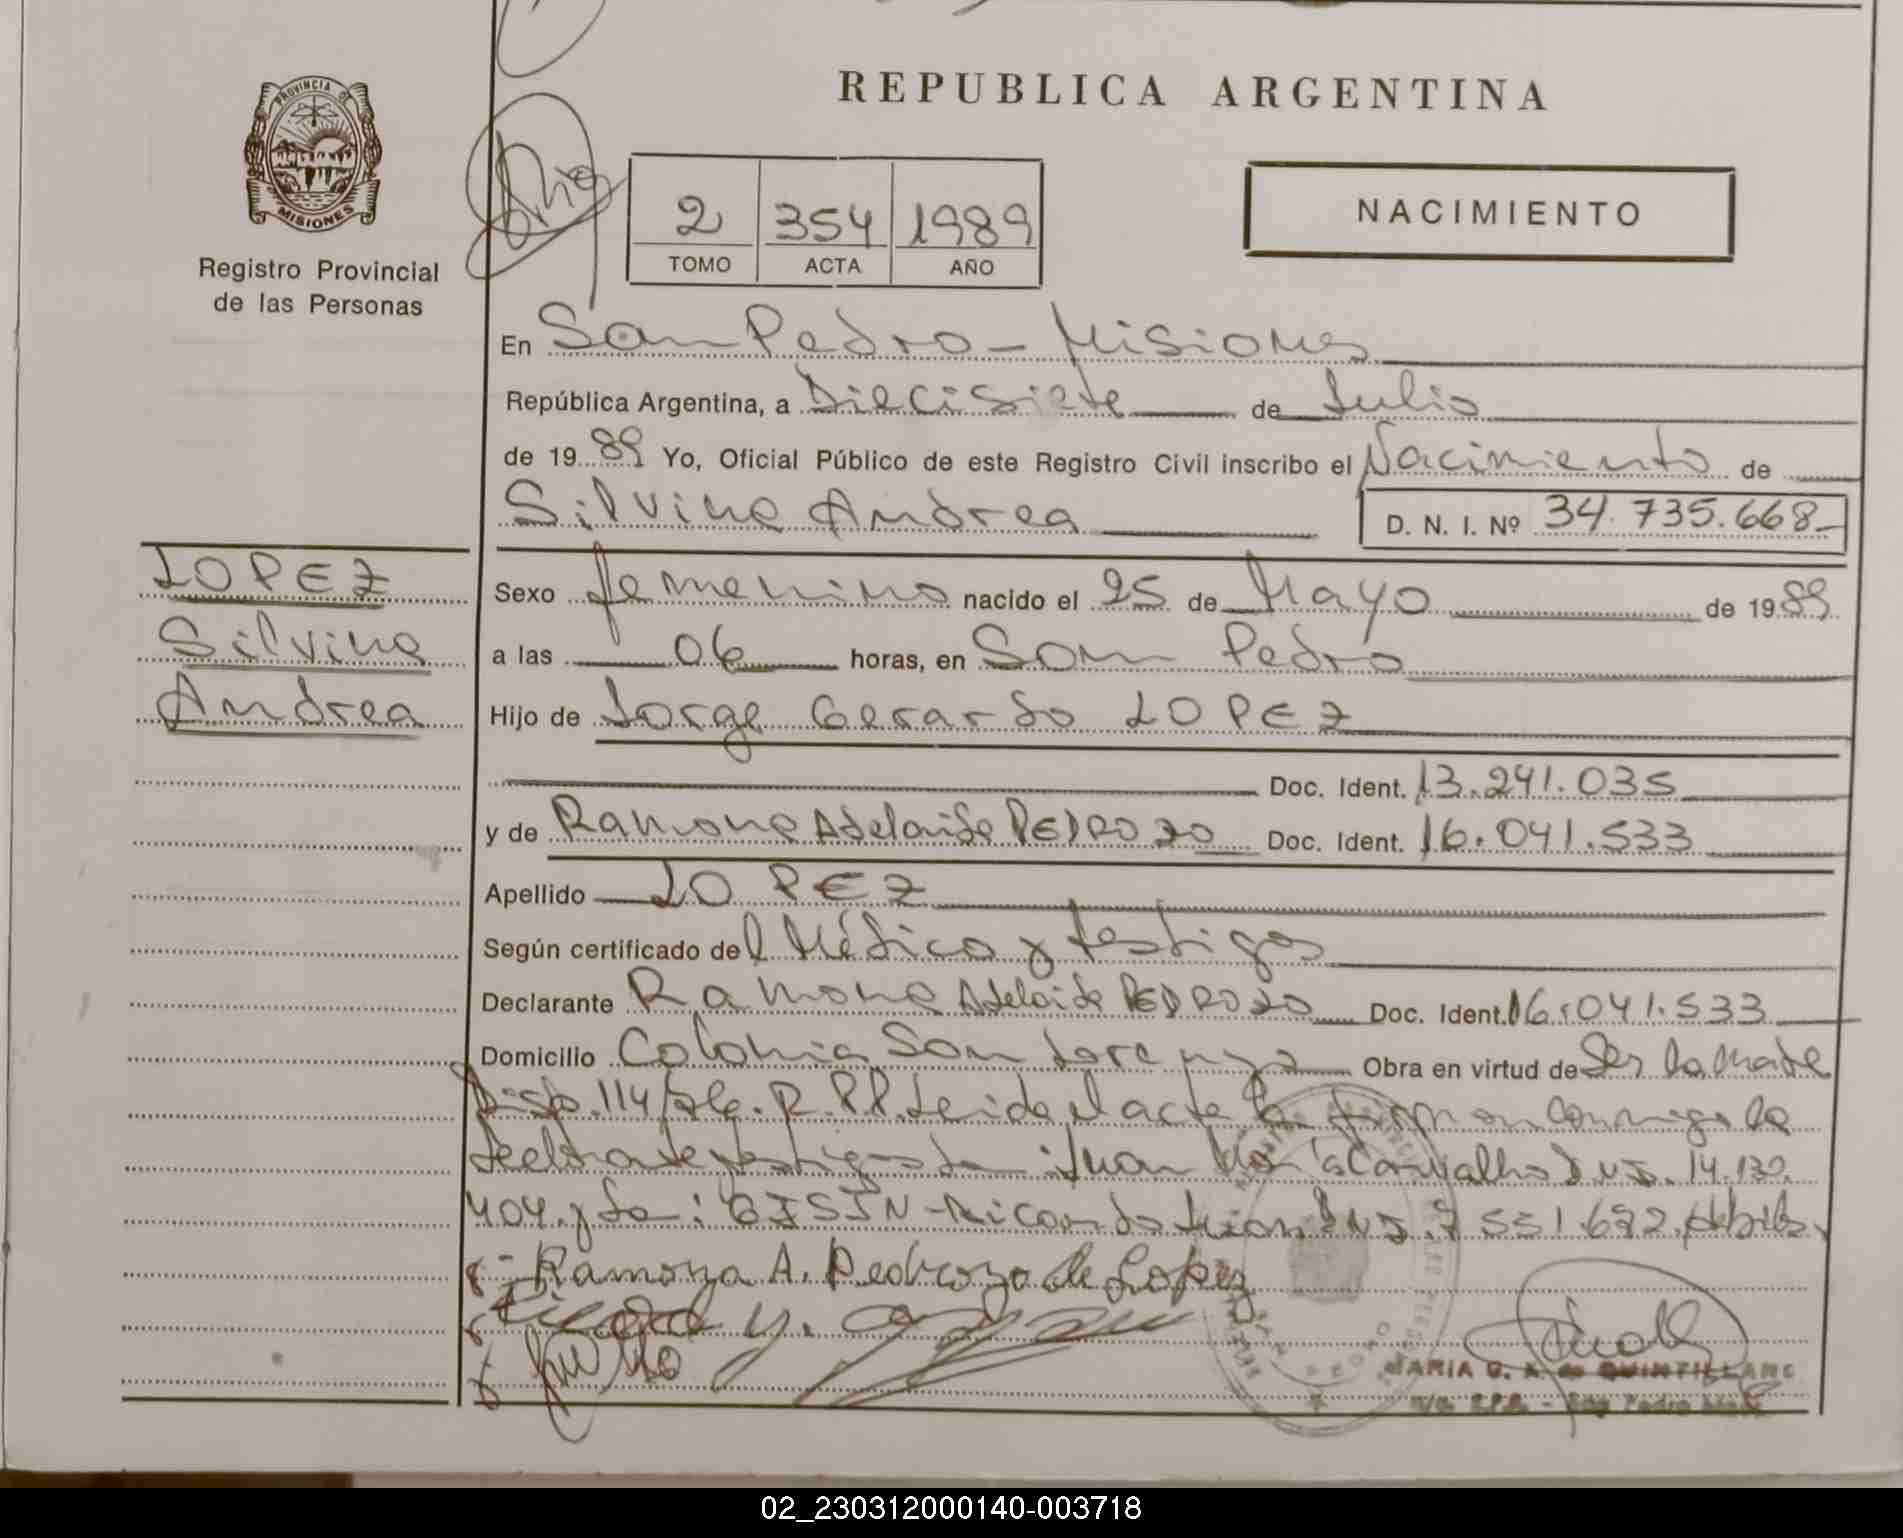 REPUBLICA ARGENTINA
PROVINCIA DE
MISIONES
Registro Provincial
de las Personas
2 354 1989
TOMO ACTA AÑO
NACIMIENTO
En San Pedro - Misiones
República Argentina, a Diecisiete de Julio
de 1989 Yo, Oficial Público de este Registro Civil inscribo el Nacimiento de
Silvina Andrea D. N. I. Nº 34.735.668
LOPEZ
Silvina
Andrea
Sexo femenino nacido el 25 de Mayo de 1989
a las 06 horas, en San Pedro
Hijo de Jorge Gerardo LOPEZ
Doc. Ident. 13.241.035
y de Ramona Adelaida PEDROZO Doc. Ident. 16.041.533
Apellido LOPEZ
Según certificado del Médico y testigos
Declarante Ramona Adelaida PEDROZO Doc. Ident. 16.041.533
Domicilio Colonia San Lorenzo Obra en virtud de Ser la madre
Disp. 114/ R.P.P. Leida el acta la firman conmigo la
declarante y testigos Juan Carvalho D.N.I. 14.130.
404 y Ricardo Juan D.N.I. 7.551.692
Ramona A. Pedrozo de Lopez
MARIA G. A. de QUINTILLANO
R.P.P. - San Pedro Mnes.
02_230312000140-003718